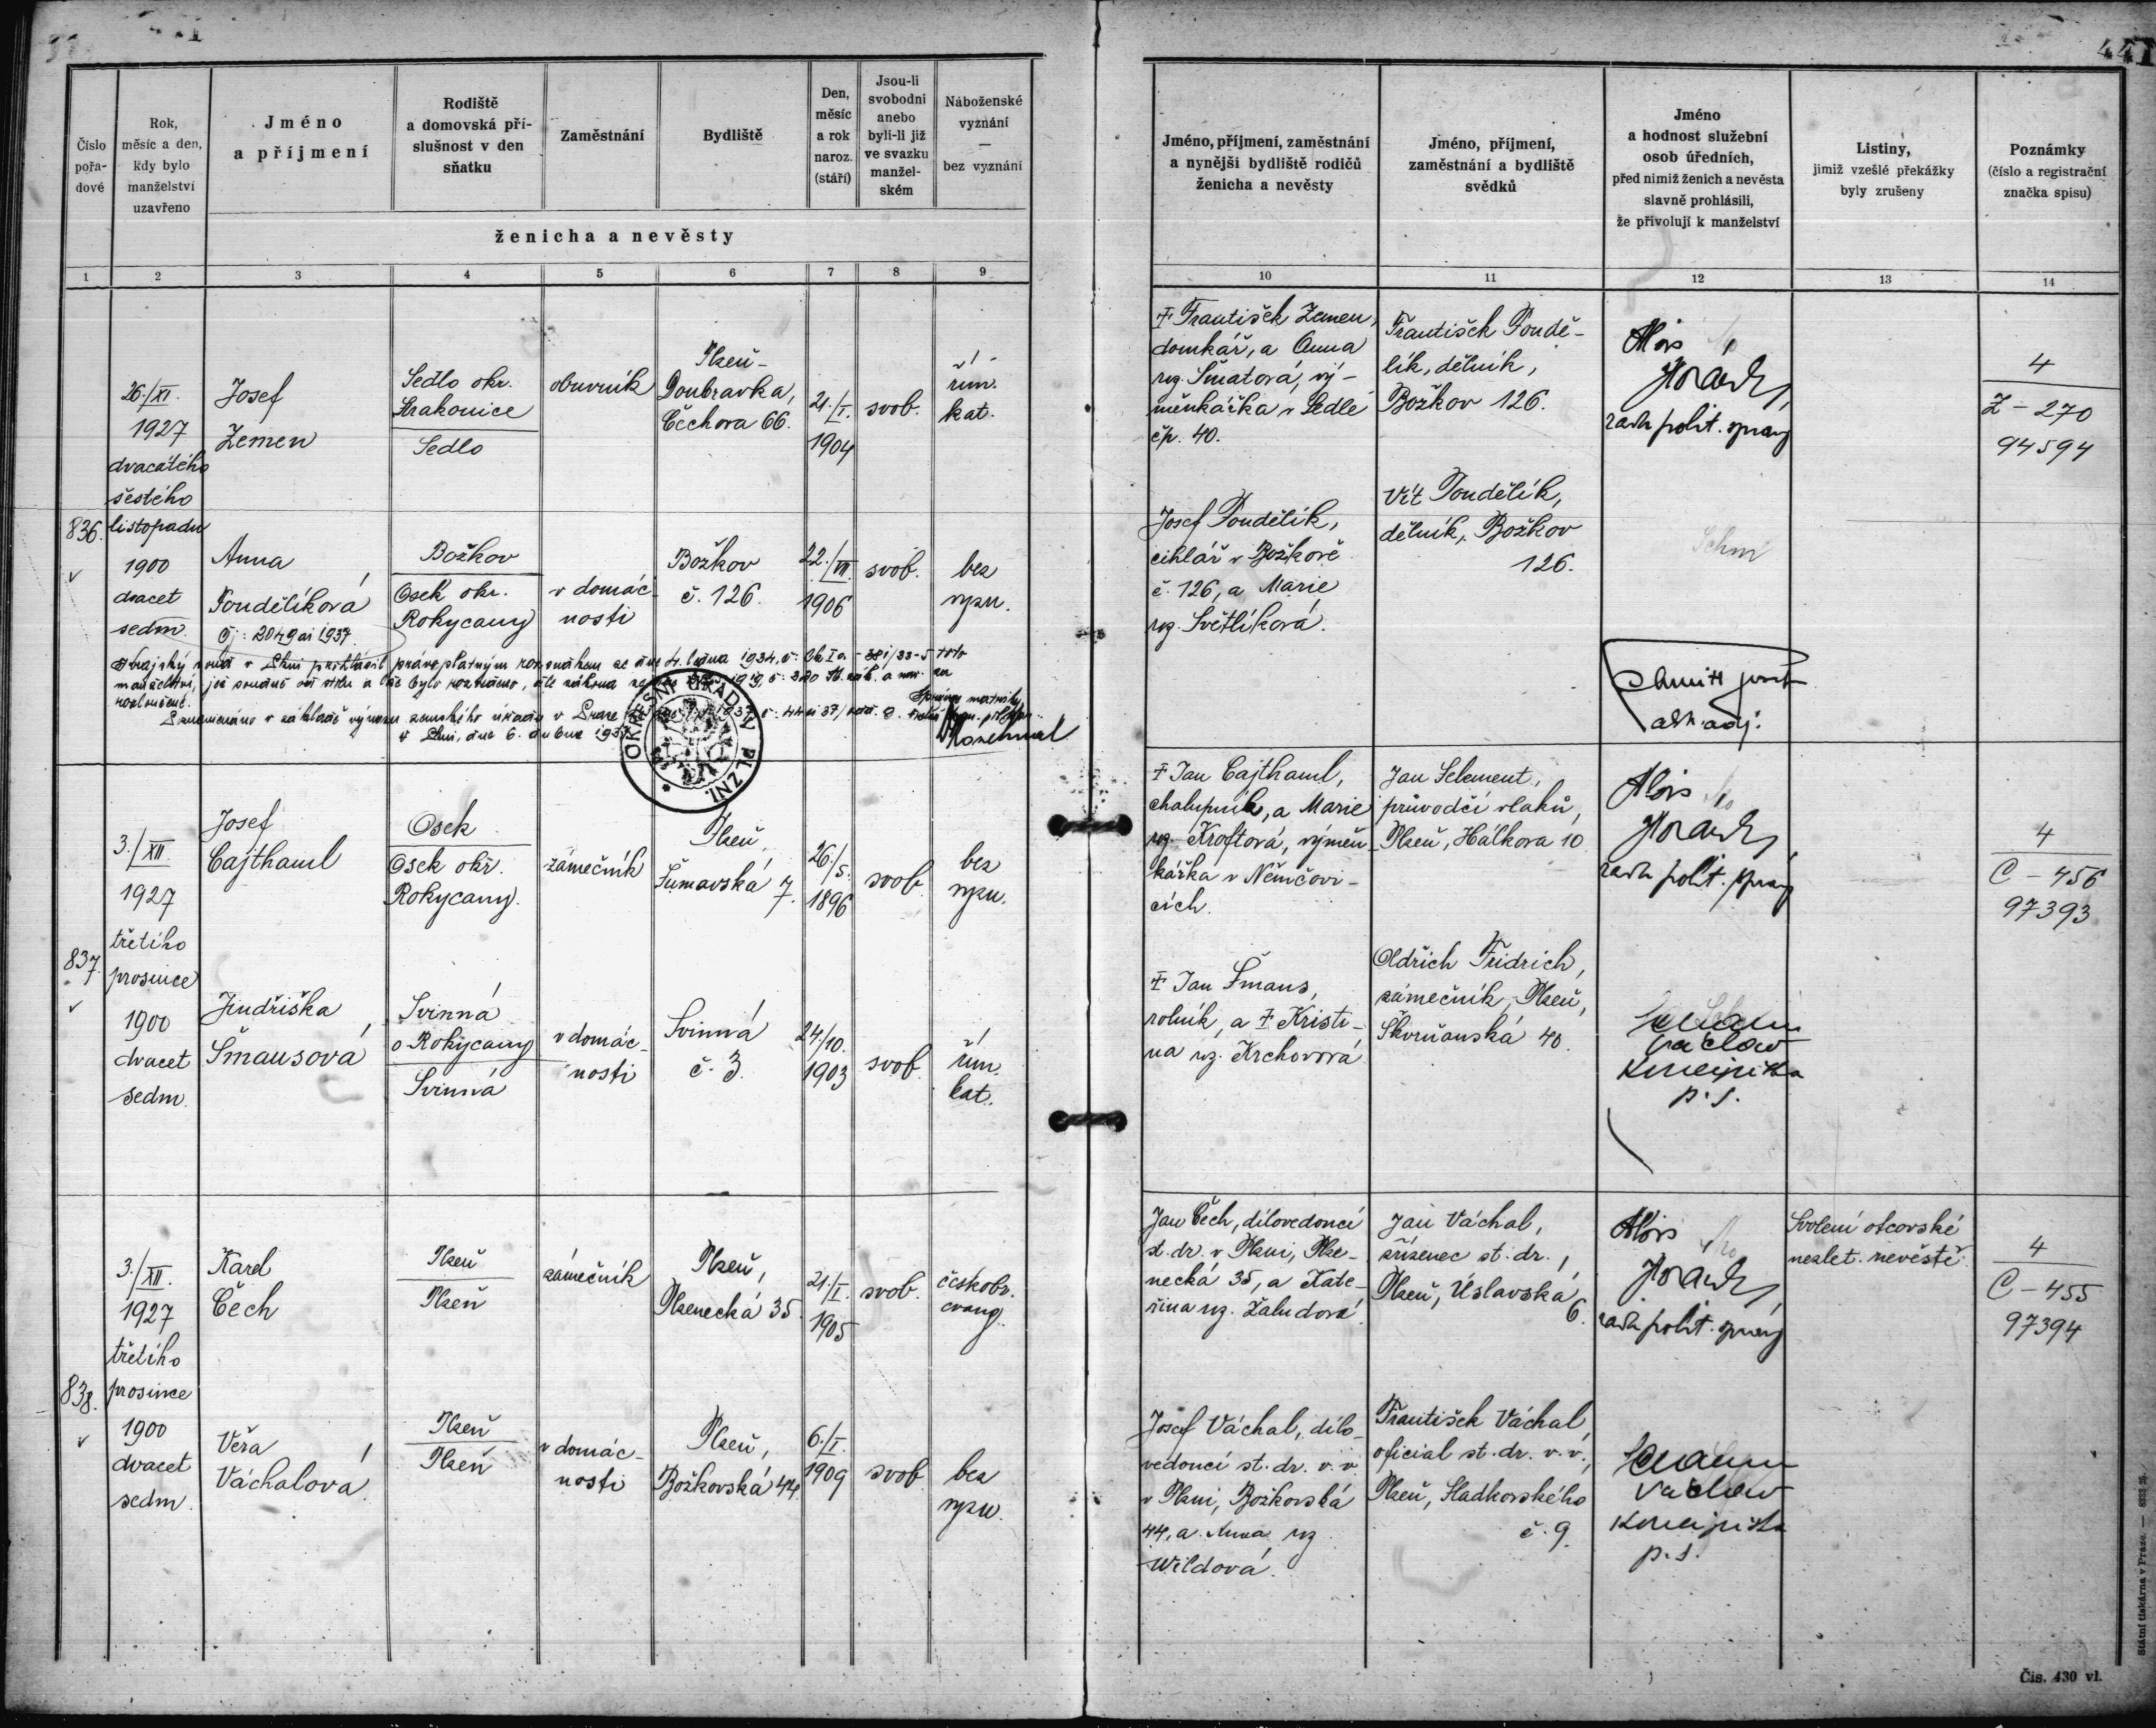 441
Číslo
pořa-
dové
Rok,
měsíc a den,
kdy bylo
manželství
uzavřeno
Jméno
a příjmení
Rodiště
a domovská pří-
slušnost v den
sňatku
Zaměstnání
Bydliště
Den,
měsíc
a rok
naroz.
(stáří)
Jsou-li
svobodni
anebo
byli-li již
ve svazku
manžel-
ském
Náboženské
vyznání
—
bez vyznání
ženicha a nevěsty
Jméno, příjmení, zaměstnání
a nynější bydliště rodičů
ženicha a nevěsty
Jméno, příjmení,
zaměstnání a bydliště
svědků
Jméno
a hodnost služební
osob úředních,
před nimiž ženich a nevěsta
slavně prohlásili,
že přivolují k manželství
Listiny,
jimiž vzešlé překážky
byly zrušeny
Poznámky
(číslo a registrační
značka spisu)
1 2 3 4 5 6 7 8 9 10 11 12 13 14
836.
26./XI.
1927
dvacátého
šestého
listopadu
1900
dvacet
sedm.
Josef
Zemen
Sedlo okr.
Strakonice
Sedlo
obuvník
Plzeň-
Doubravka,
Čechova 66.
21./I.
1904
svob.
řím.
kat.
Ŧ František Zemen,
domkář, a Anna
roz. Šmatová, vý-
měnkářka v Sedle
čp. 40.
František Pondě-
lík, dělník,
Božkov 126.
Alois
Horák,
rada polit. správy
4
Z - 270
94594
Anna
Pondělíková
Božkov
Osek okr.
Rokycany
v domác-
nosti
Božkov
č. 126.
22./VII.
1906
svob.
bez
vyzn.
Josef Pondělík,
cihlář v Božkově
č. 126, a Marie
roz. Světlíková.
Vít Pondělík,
dělník, Božkov
126.
Schm
Čj: 2049 ai 1937
Krajský soud v Plzni prohlásil právoplatným rozsudkem ze dne 4. ledna 1934, č: Ck I a - 381/33-5 toto
manželství,
rozloučené.
Poznamenáno v základě výnosu zemského úřadu v Praze
v Plzni, dne 6. dubna 1937
OKRESNÍ ÚŘAD V PLZNI.
Správce matriky
837.
3./XII.
1927
třetího
prosince
1900
dvacet
sedm.
Josef
Cajthaml
Osek
Osek okr.
Rokycany.
zámečník
Plzeň,
Šumavská 7.
26./5.
1896
svob.
bez
vyzn.
Ŧ Jan Cajthaml,
chalupník, a Marie
roz. Kroftová, výměn-
kářka v Němčovi-
cích.
Jan Selement,
průvodčí vlaků,
Plzeň, Hálkova 10
Alois
Horák,
rada polit. správy
4
C - 456
97393
Jindřiška
Šmausová
Svinná
o Rokycany
Svinná
v domác-
nosti
Svinná
č. 3.
24./10.
1903
svob.
řím.
kat.
Ŧ Jan Šmaus,
rolník, a Ŧ Kristi-
na roz. Krchovová
Oldřich Fridrich,
zámečník, Plzeň,
Škvrňanská 40.
Václav
p. s.
838.
3./XII.
1927
třetího
prosince
1900
dvacet
sedm.
Karel
Čech
Plzeň
Plzeň
zámečník
Plzeň,
Plzenecká 35.
21./I.
1905
svob.
českobr.
evang.
Jan Čech, dílovedoucí
st. dr. v Plzni, Plze-
necká 35, a Kate-
řina roz. Žaludová.
Jan Váchal,
zřízenec st. dr.,
Plzeň, Úslavská
6.
Alois
Horák,
rada polit. správy
Svolení otcovské
nezlet. nevěstě.
4
C - 455
97394
Věra
Váchalová.
Plzeň
Plzeň
v domác-
nosti
Plzeň,
Božkovská 44.
6./I.
1909
svob.
bez
vyzn.
Josef Váchal, dílo-
vedoucí st. dr. v. v.
v Plzni, Božkovská
44, a Anna roz.
Wildová.
František Váchal,
oficial st. dr. v. v.,
Plzeň, Sladkovského
č. 9.
Václav
p. s.
Státní tiskárna v Praze.
Čís. 430 vl.